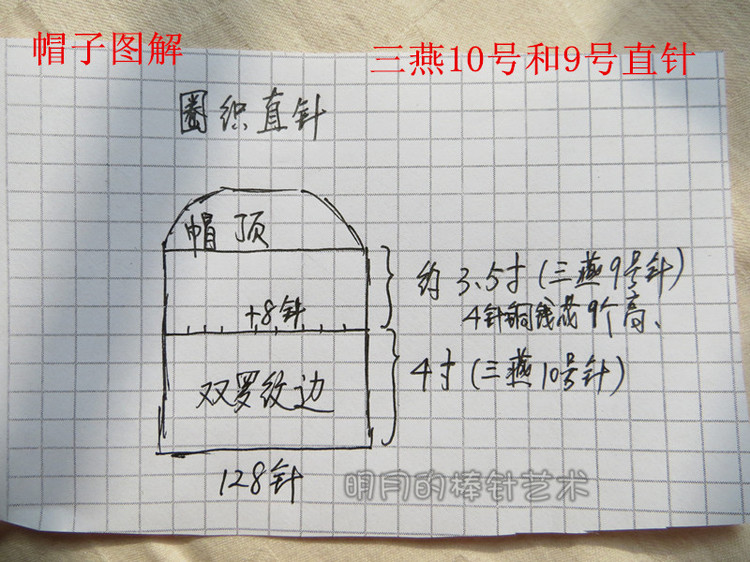 帽子图解
三燕10号和9号直针
圈织直针
帽顶
约3.5寸(三燕9号针)
4针铜钱花9个高、
+8针
4寸(三燕10号针)
双罗纹边
128针
明月的棒针艺术